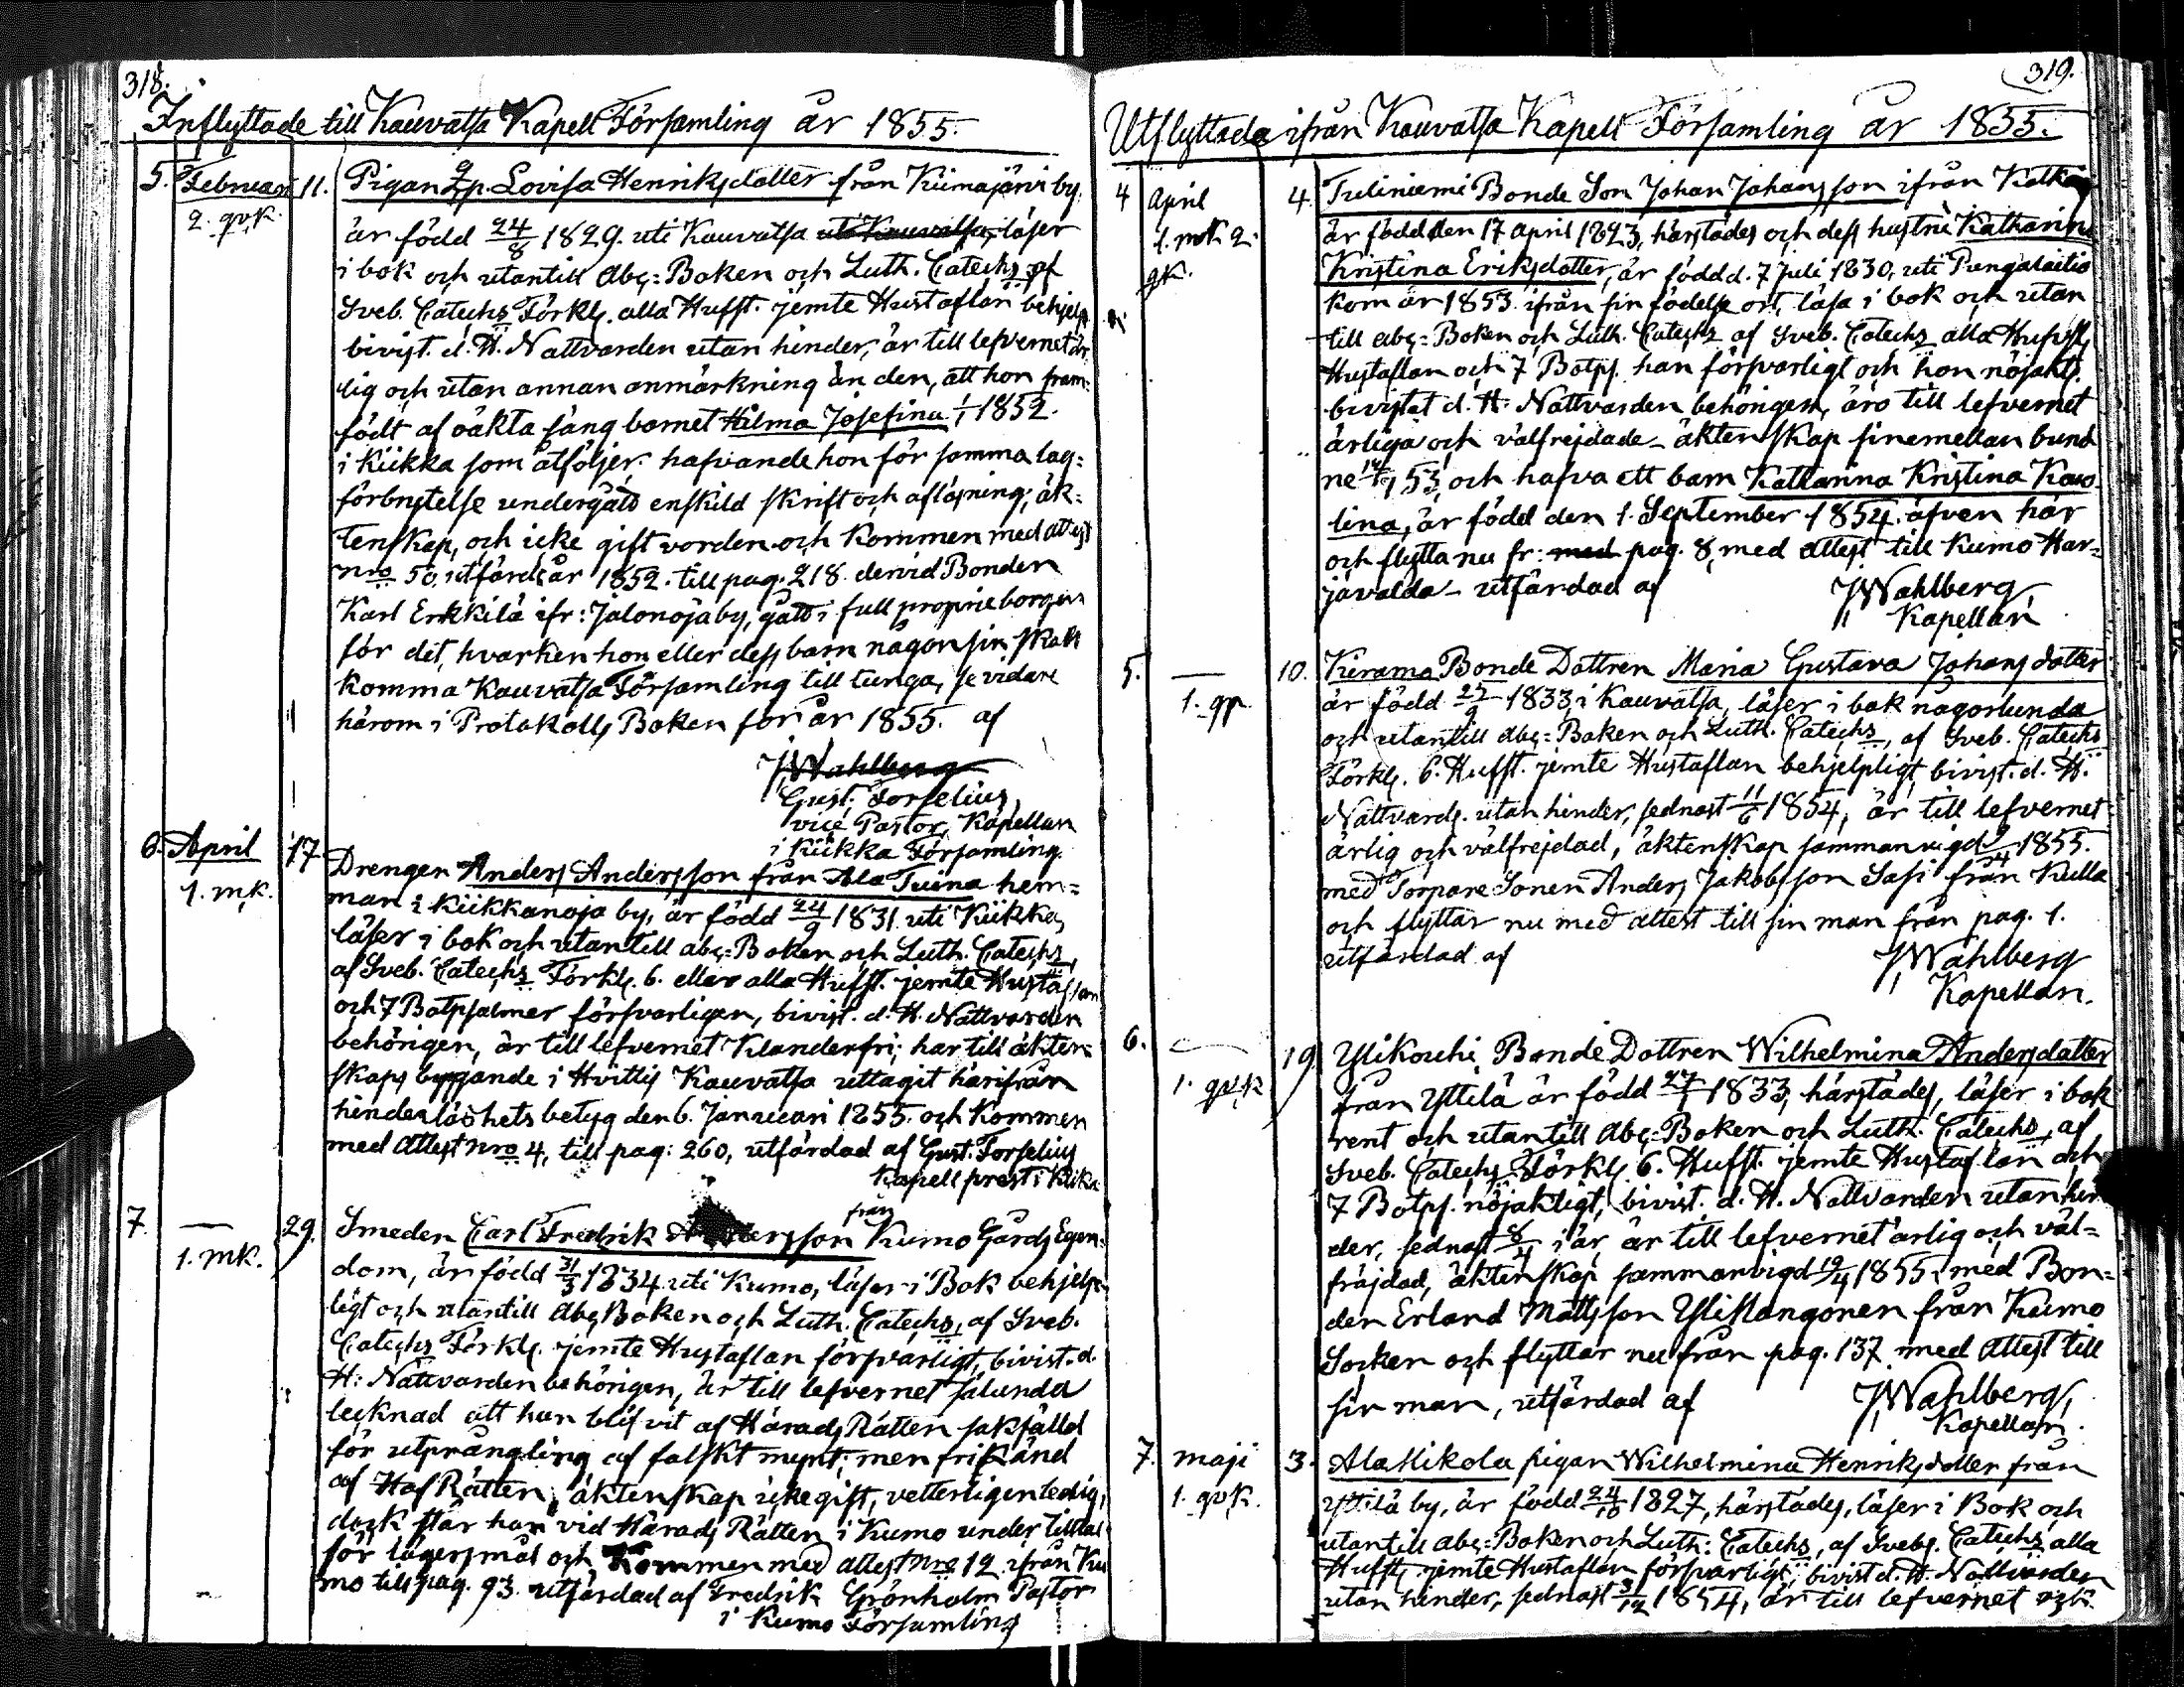 318.
Inflyttade till Kauvatsa Kapell Församling år 1855.
5. Februari 11. Pigan Lovisa Henriksdotter från Kiimajärvi by
2. qv.k. är född 24/8 1829. uti Kauvatsa uti Kauvatsa, läser
i bok och utantill Abc=Boken och Luth. Catechs af
Sveb. Catechs Förkl. alla Hufst. jemte Hustaflan behjelp.
bivist. d. H. Nattvarden utan hinder, är till lefvernet är
lig och utan annan anmärkning än den, att hon fram=
födt af oäkta säng barnet Hilma Josefina 1/1 1852.
i Kiikka som åtföljer. hafvande hon för samma lag=
förbrytelse undergått enskild skrift och aflösning; äk=
tenskap, och icke gift vorden och kommen med attest
nro 50, utfärd. år 1852. till pag. 218. dervid Bonden
Karl Erkkilä ifr: Jalonoja by, gått i full proprieborgen
för det, hvarken hon eller dess barn någonsin skall
komma Kauvatsa Församling till tunga, se vidare
härom i Protokolls Boken för år 1855. af
JWahlberg
Gust: Forselius,
vice Pastor, Kapellan
i Kiikka Församling.
6. April 17. Drengen Anders Andersson från Ala Tuina hem=
1. mk. man i Kiikkanoja by, är född 24/9 1831. uti Kiikka,
läser i bok och utantill abc=Boken och Luth. Catechs,
af Sveb. Catechs Förkl. 6. eller alla Hufst. jemte Hustaflan
och 7 Botpsalmer försvarligen, bivist. d. H. Nattvarden
behörigen, är till lefvernet klanderfri; har till äkten=
skaps byggande i Hvittis Kauvatsa uttagit härifrån
hinderslöshets betyg den 6. Januari 1855. och kommen
med Attest nro 4, till pag: 260, utfärdad af Gust. Forselius
Kapell prest i Kiikka
7. — 29. Smeden Carl Fredrik från Kumo Gårds Egen=
1. mk. dom, är född 31/3 1834 uti Kumo, läser i Bok behjelp=
ligt och utantill Abc Boken och Luth. Catechs, af Sveb.
Catechs Förkl. jemte Hustaflan försvarligt, bivist. d.
H: Nattvarden behörigen, är till lefvernet sålunda
tecknad att han blifvit af Härads Rätten sakfälld
för utprångling af falskt mynt; men frikänd
af Hof Rätten, äktenskap icke gift, vetterligen ledig,
dock står han vid Härads Rätten i Kumo under tilltal
för lägersmål och Kommen med attest nro 12. ifrån Ku
mo till pag. 93. utfärdad af Fredrik Grönholm Pastor
i Kumo Församling
319.
Utflyttade ifrån Kauvatsa Kapell Församling år 1855.
4 April 4. Tuliniemi Bonde Son Johan Johansson ifrån
1. mk 2. är född den 17 april 1823, härstädes och dess hustru Katharina
qk. Kristina Eriksdotter, är född d. 7 juli 1830, uti Pungalaitio
kom år 1853. ifrån sin födelse ort, läsa i bok och utan
till abc=Boken och Luth. Catechs af Sveb. Catechs alla Hufst,
Hustaflan och 7 Botps. han försvarligt och hon nöjakt.
bivistat d. H: Nattvarden behörigen, äro till lefvernet
ärliga och välfrejdade - äktenskap sinemellan bund
ne 53, och hafva ett barn Katharina Kristina Karo
lina, är född den 1. September 1854. äfven här
och flytta nu fr: med pag. 8, med attest till Kumo Har=
javalda - utfärdad af JWahlberg,
Kapellan
5. — 10. Kerama Bonde Dottren Maria Gustava Johansdotter
1. qp är född 27/9 1833, i Kauvatsa, läser i bok någorlunda
och utantill abc=Boken och Luth. Catechs, af Sveb. Catechs
Förkl. 6. Hufst. jemte Hustaflan behjelpligt, bivist. d. H.
Nattvards. utan hinder, sednast 11/6 1854, är till lefvernet
ärlig och välfrejdad, äktenskap sammanvigd 9/4 1855.
med Torpare Sonen Anders Jakobsson Sasi från Kulla
och flyttar nu med attest till sin man från pag. 1.
utfärdad af JWahlberg
Kapellan.
6. — 19. Ylikouhi Bonde Dottren Wilhelmina Andersdotter
1. qv.k från Yttilä är född 1833, härstädes, läser i bok
rent och utantill Abc=Boken och Luth. Catechs, af
Sveb. Catechs Förkl. 6. Hufst. jemte Hustaflan och
7 Botps. nöjaktligt, bivist. d. H. Nattvarden utan hin
der, sednast 8/4 i år, är till lefvernet ärlig och väl=
fräjdad, äktenskap sammanvigd 19/4 1855, med Bon=
den Erland Mattsson från Kumo
Socken och flyttar nu från pag. 137 med Attest till
sin man, utfärdad af JWahlberg,
Kapellan.
7. maji 3. AlaNikola pigan Wilhelmina Henriksdotter från
1. qv.k. Yttilä by, är född 24/10 1827, härstädes, läser i Bok och
utantill abc=Boken och Luth: Catechs, af Sveb. Catechs alla
Hufst, jemte Hustaflan försvarligt, bivist d. H. Nattvarden
utan hinder, sednast 3/12 1854, är till lefvernet